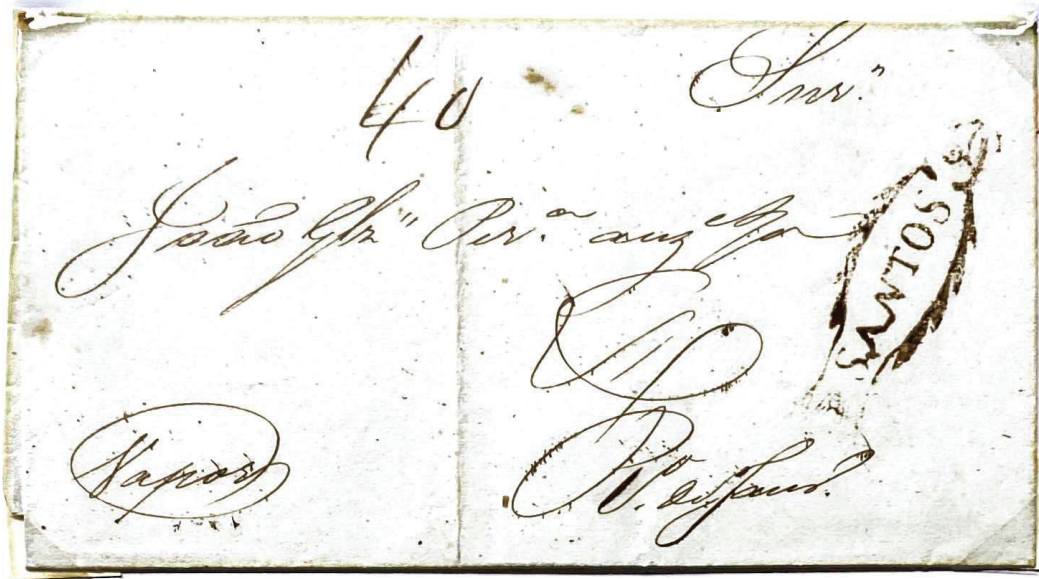 40
Snr.
João Glz" Per.ª
SANTOS
Vapor
R.º de Janr.º